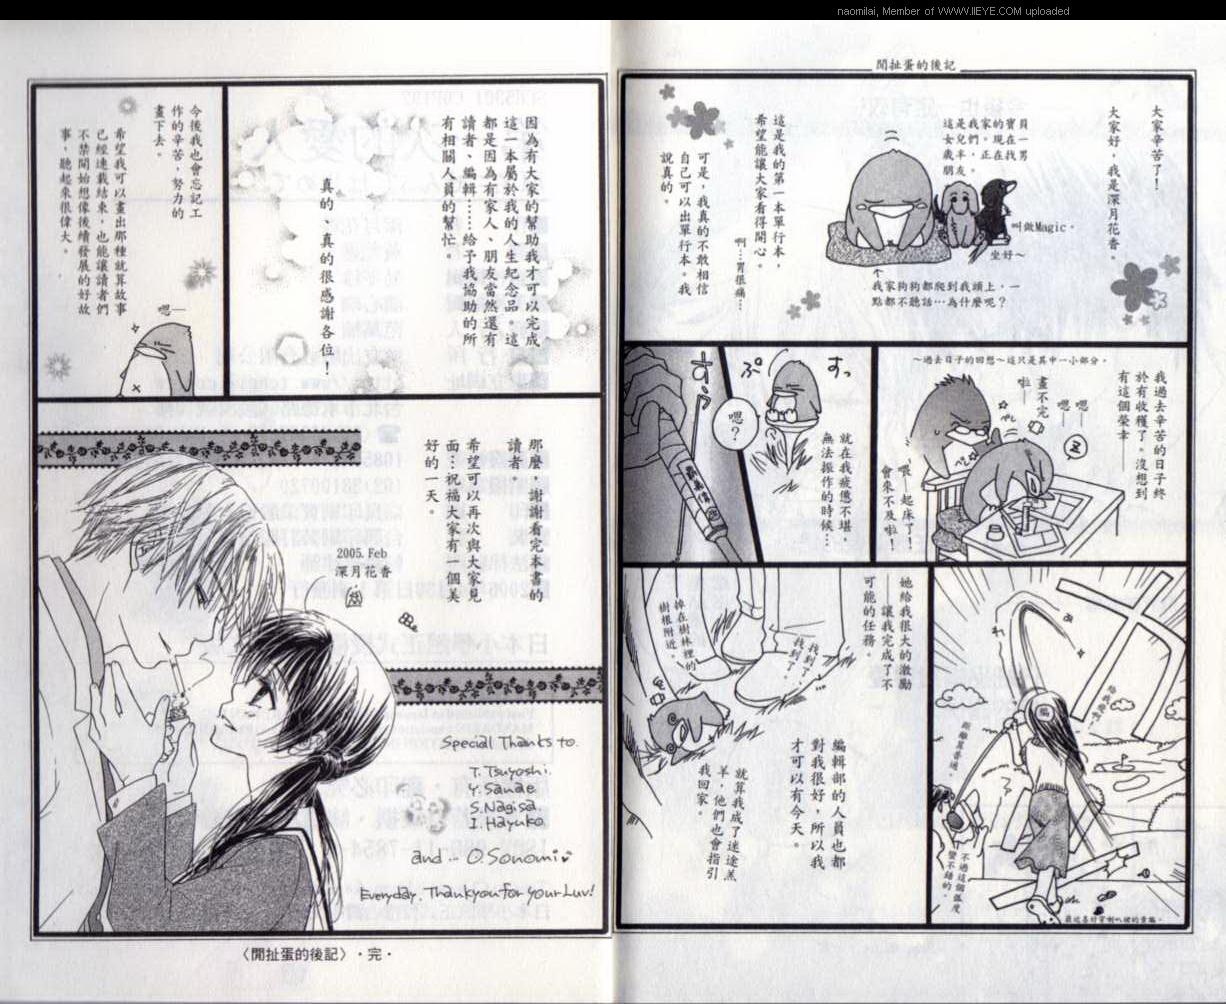 naomilai, Member of WWW.IIEYE.COM uploaded
閒扯蛋的後記
大家辛苦了！
大家好，我是深月花香。
這是我家的寶貝
女兒們，現在一
歲半。正在找男
朋友。
叫做Magic。
坐好～
我家狗狗都爬到我頭上，一
點都不聽話…為什麼呢？
這是我的第一本單行本，
希望能讓大家看得開心。
啊…胃很痛…
可是，我真的不敢相信
自己可以出單行本。我
說真的。
我過去辛苦的日子終
於有收穫了。沒想到
有這個榮幸——
～過去日子的回想～這只是其中一小部分。
嗯——
嗯——
畫不完
啦——
喂——起床了——
會來不及啦——
すっ
ぷ
嗯？
就在我疲憊不堪
無法振作的時候…
她給我很大的激勵
——讓我完成了不
可能的任務。
不過這個弧度
蠻不錯的。
我到了，
我到了…
掉在樹林裡的
樹根附近。
編輯部的人員也都
對我很好，所以我
才可以有今天。
就算我成了迷途羔
羊，他們也會指引
我回家。
因為有大家的幫助我才可以完成
這一本屬於我的人生紀念品。這
都是因為有家人、朋友當然還有
讀者、編輯……給予我協助的所
有相關人員的幫忙。
真的、真的很感謝各位！
今後我也會忘記工
作的辛苦，努力的
畫下去。
希望我可以畫出那種就算故事
已經連載結束，也能讓讀者們
不禁開始想像後續發展的好故
事，聽起來很偉大。
嗯—
那麼，謝謝看完本書的
讀者。
希望可以再次與大家見
面…祝福大家有一個美
好的一天。
2005. Feb
深月花香
Special Thanks to.
T. Tsuyoshi
Y. Sanae
S. Nagisa
I. Hayuko
and… O. Sonomi
Everyday. Thankyou for your Luv!
〈閒扯蛋的後記〉・完・